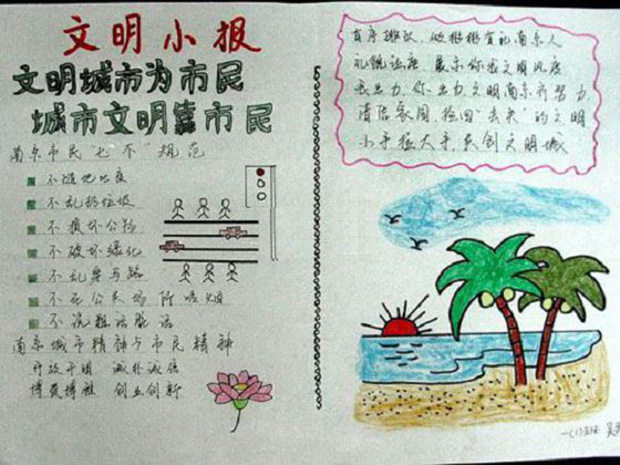 文明小报
文明城市为市民
城市文明靠市民
南京市民"七不"规范
不随地吐痰
不乱扔垃圾
不损坏公物
不破坏绿化
不乱穿马路
不在公共场所吸烟
不说粗话脏话
南京城市精神与市民精神
开放开明 诚朴诚信
博爱博雅 创业创新
有序排放，做彬彬有礼南京人
礼貌适度，展示你我文明风度
我出力，你出力，文明南京齐努力
清洁家园，捡回"丢失"的文明
小手拉大手，共创文明城